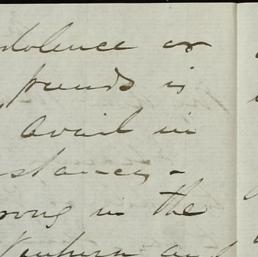 dolence or
is
avail in
stances -
rong in the